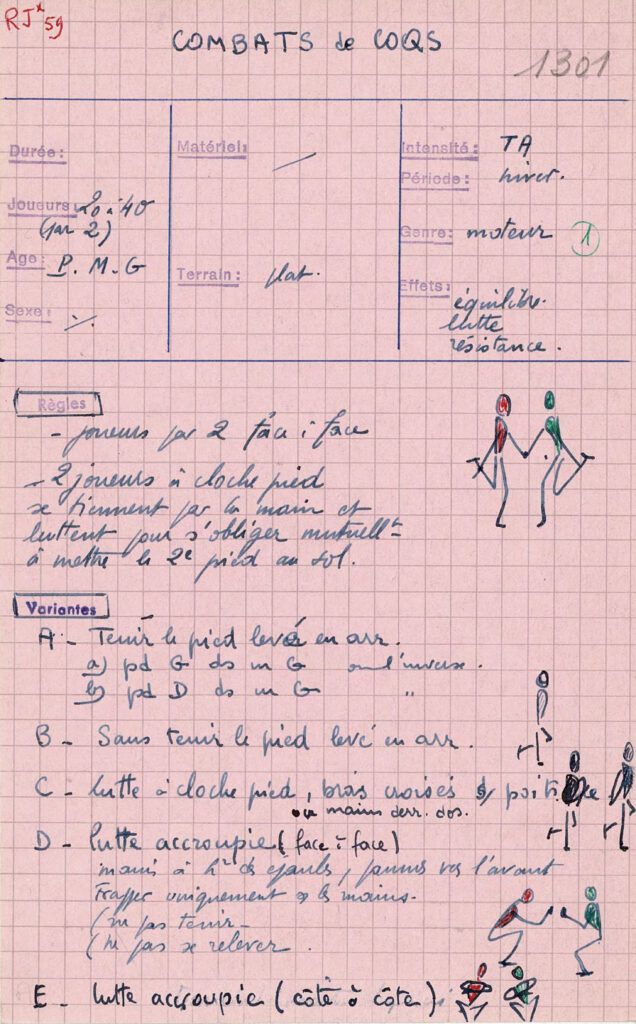 RJx 59
COMBATS de COQS
1301
Durée :
Joueurs : 20 à 40
(par 2)
Age : P. M. G
Sexe : ·/.
Matériel : —
Terrain : plat.
Intensité : TA
Période : hiver.
Genre : moteur 1
Effets : équilibre.
lutte
résistance.
Règles
- joueurs par 2 face à face
- 2 joueurs à cloche pied
se tiennent par la main et
luttent pour s'obliger mutuellt
à mettre le 2e pied au sol.
Variantes
A - Tenir le pied levé en arr.
a) pd G ds m G ou l'inverse.
b) pd D ds m G "
B - Sans tenir le pied levé en arr.
C - lutte à cloche pied, bras croisés s/ poitrine
ou mains derr. dos.
D - lutte accroupie (face à face)
mains à hr des épaules, paumes vers l'avant
Frapper uniquement les mains.
(ne pas tenir -
(ne pas se relever.
E - lutte accroupie (côte à côte)